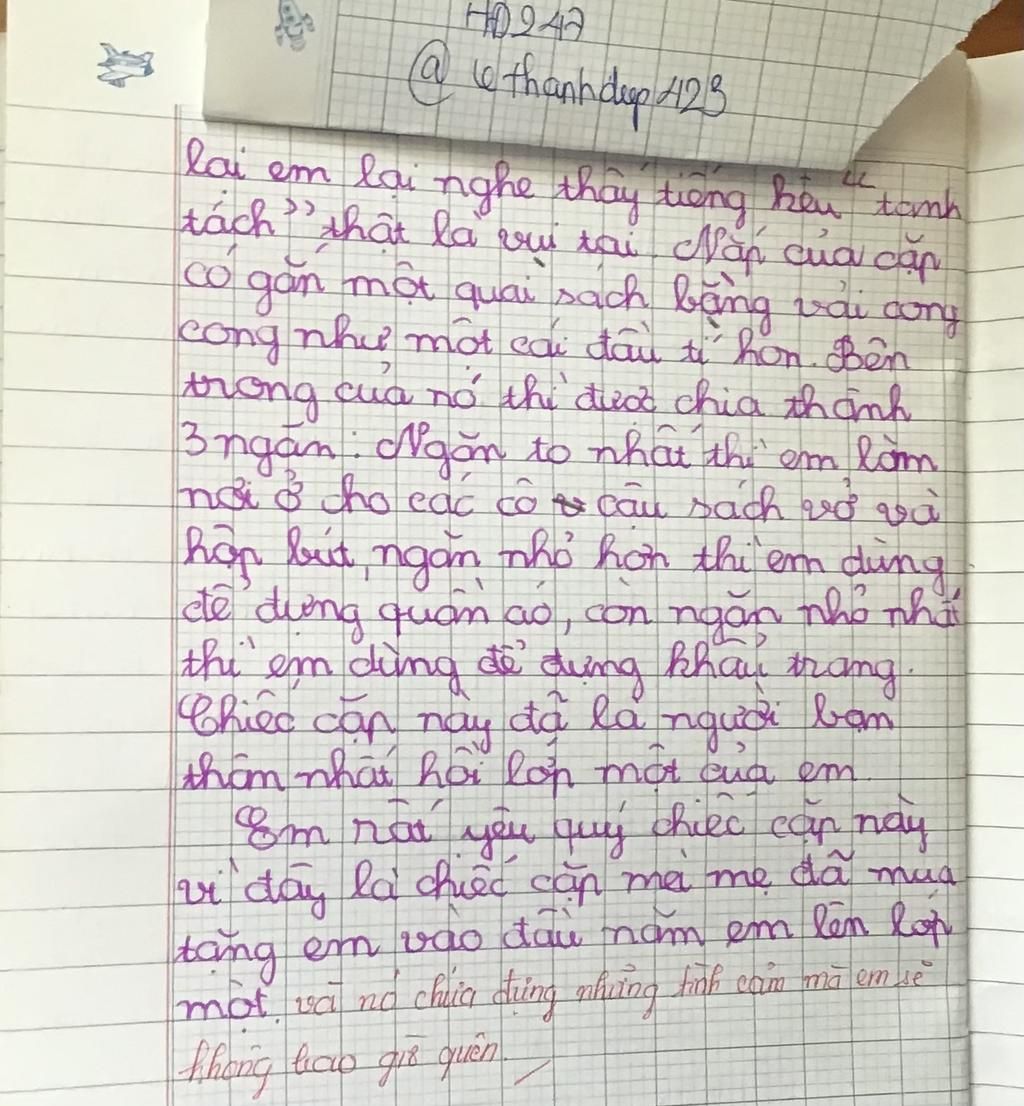 HD247
@ lethanhdep423
lại em lại nghe thấy tiếng kêu “ tanh
tách ” thật là vui tai. Nắp của cặp
có gắn một quai sách bằng vải cong
cong như một cái đầu tí hon. Bên
trong của nó thì được chia thành
3 ngăn : Ngăn to nhất thì em làm
nơi ở cho các cô cậu sách vở và
hộp bút, ngăn nhỏ hơn thì em dùng
để đựng quần áo, còn ngăn nhỏ nhất
thì em dùng để đựng khẩu trang.
Chiếc cặp này đã là người bạn
thân nhất hồi lớp một của em.
Em rất yêu quý chiếc cặp này
vì đây là chiếc cặp mà mẹ đã mua
tặng em vào đầu năm em lên lớp
một. và nó chứa đựng những tình cảm mà em sẽ
không bao giờ quên.